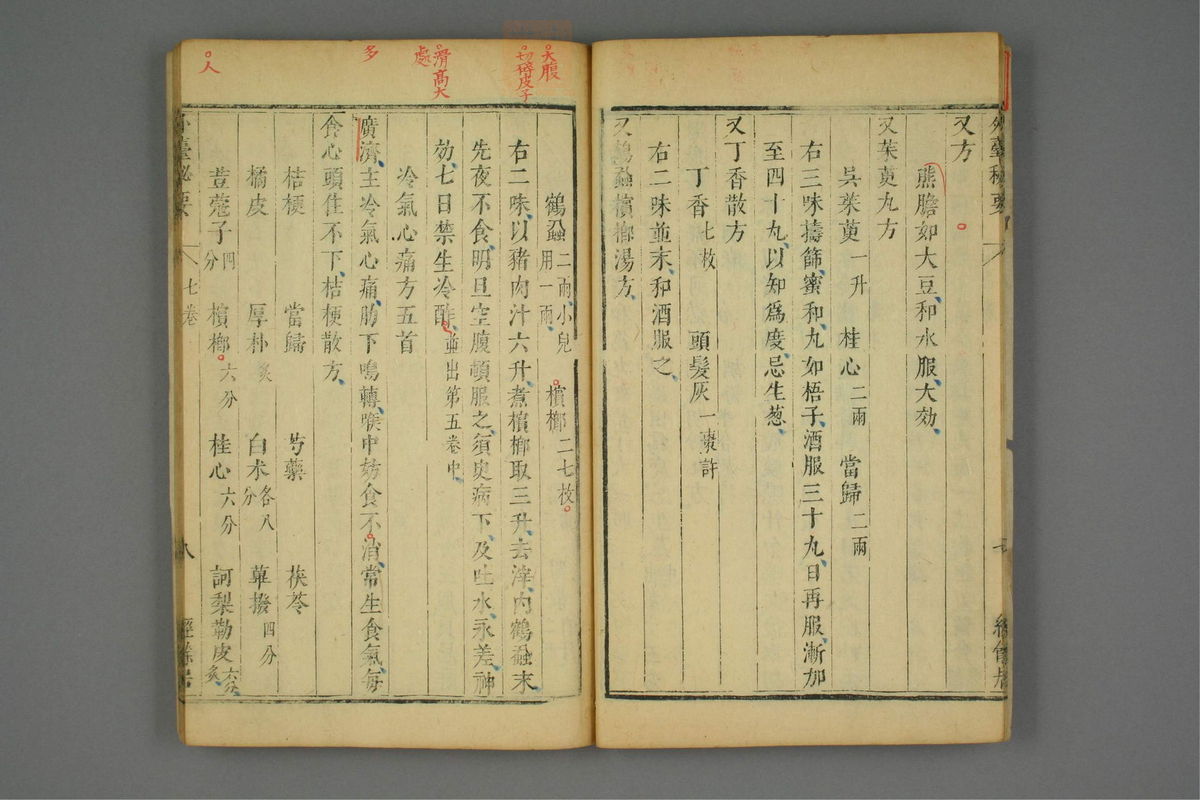 外臺秘要
又方
熊膽如大豆和水服大効
又茱萸丸方
吳茱萸一升 桂心二兩 當歸二兩
右三味擣篩蜜和丸如梧子酒服三十丸日再服漸加
至四十丸以知爲度忌生葱
又丁香散方
丁香七枚 頭髮灰一棗許
右二味並末和酒服之
又鶴蝨檳榔湯方
大腹
切檳皮子
滑高大
處
多
人
鶴蝨二兩小兒用一兩 檳榔二七枚
右二味以豬肉汁六升煮檳榔取三升去滓內鶴蝨末
先夜不食明旦空腹頓服之須臾病下及吐水永差神
効七日禁生冷酢並出第五卷中
冷氣心痛方五首
廣濟主冷氣心痛肋下鳴轉喉中妨食不消常生食氣每
食心頭住不下桔梗散方
桔梗 當歸 芍藥 茯苓
橘皮 厚朴炙 白朮各八分 蓽撥四分
荳蔲子四分 檳榔六分 桂心六分 訶梨勒皮六分炙
外臺秘要 七卷 八 經餘居